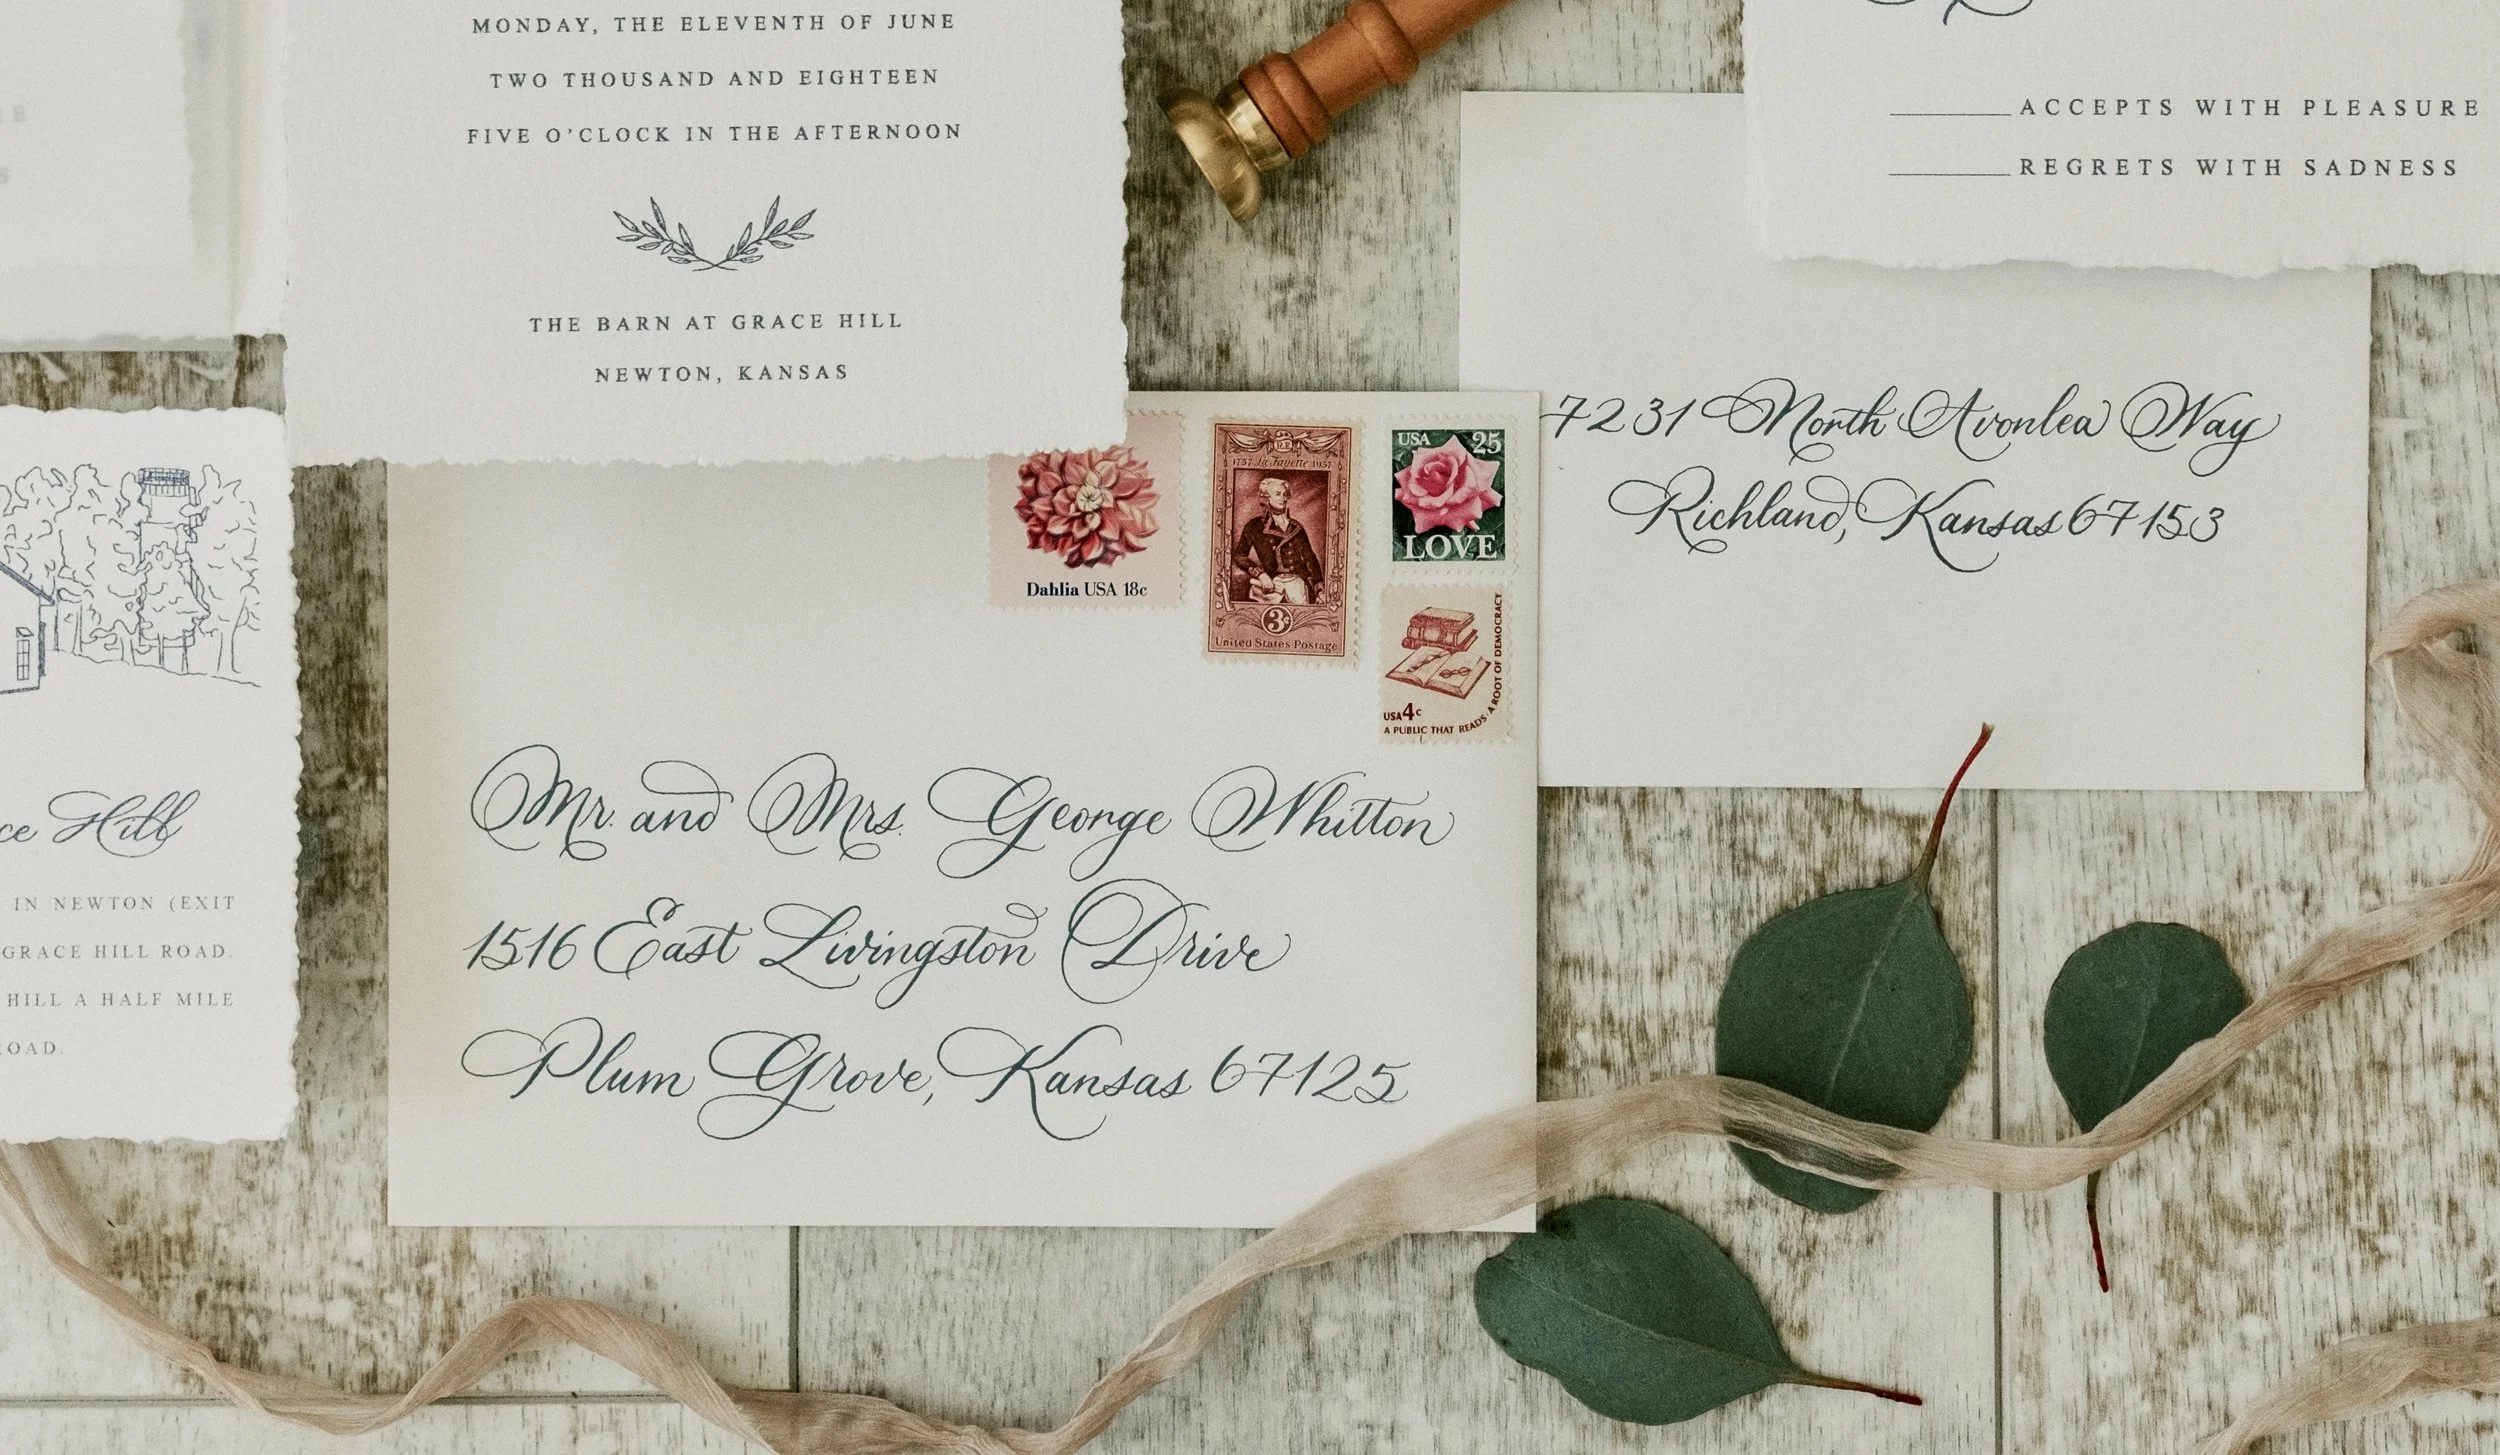 MONDAY, THE ELEVENTH OF JUNE
TWO THOUSAND AND EIGHTEEN
FIVE O'CLOCK IN THE AFTERNOON
THE BARN AT GRACE HILL
NEWTON, KANSAS
ACCEPTS WITH PLEASURE
REGRETS WITH SADNESS
7231 North Avonlea Way
Richland, Kansas 67153
Dahlia USA 18c
1757 La Fayette 1957
3c
United States Postage
USA 25
LOVE
USA 4c
A PUBLIC THAT READS: A ROOT OF DEMOCRACY
Mr. and Mrs. George Whitton
1516 East Livingston Drive
Plum Grove, Kansas 67125
Hill
IN NEWTON (EXIT
GRACE HILL ROAD.
HILL A HALF MILE